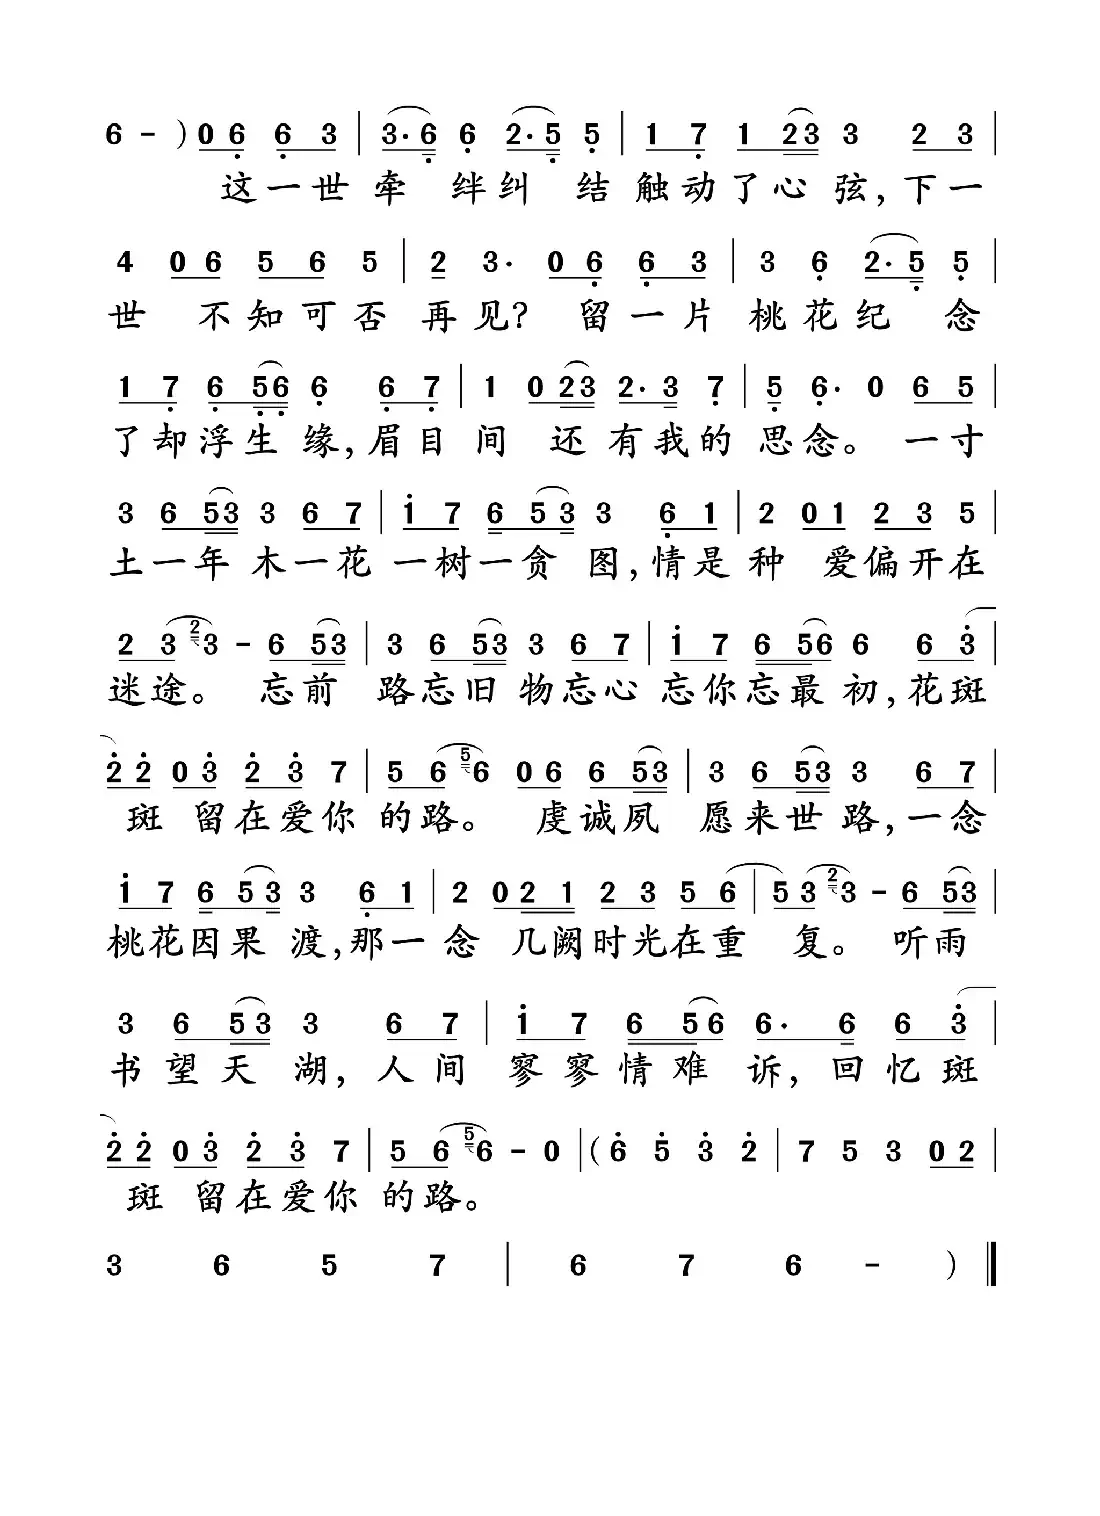 6 - ) 0 6 6 3 | 3· 6 6 2· 5 5 | 1 7 1 2 3 3 2 3 |
这一世牵 绊纠 结 触动了心 弦,下一
4 0 6 5 6 5 | 2 3· 0 6 6 3 | 3 6 2· 5 5 |
世 不知可否 再见? 留一片 桃花纪 念
1 7 6 5 6 6 6 7 | 1 0 2 3 2· 3 7 | 5 6· 0 6 5 |
了却浮生 缘,眉目 间 还 有我的 思念。 一寸
3 6 5 3 3 6 7 | 1 7 6 5 3 3 6 1 | 2 0 1 2 3 5 |
土一年 木一花 一树一贪 图,情是 种 爱偏开在
2 3 2 3 - 6 5 3 | 3 6 5 3 3 6 7 | 1 7 6 5 6 6 6 3 |
迷途。 忘前 路忘旧 物忘心 忘你忘最 初,花斑
2 2 0 3 2 3 7 | 5 6 5 6 0 6 6 5 3 | 3 6 5 3 3 6 7 |
斑 留在爱你 的路。 虔诚夙 愿来世路,一念
1 7 6 5 3 3 6 1 | 2 0 2 1 2 3 5 6 | 5 3 2 3 - 6 5 3 |
桃花因果 渡,那一念 几阙时光在重 复。 听雨
3 6 5 3 3 6 7 | 1 7 6 5 6 6· 6 6 3 |
书望天 湖,人间 寥寥情难 诉,回忆斑
2 2 0 3 2 3 7 | 5 6 5 6 - 0 | ( 6 5 3 2 | 7 5 3 0 2 |
斑 留在爱你 的路。
3 6 5 7 | 6 7 6 - )